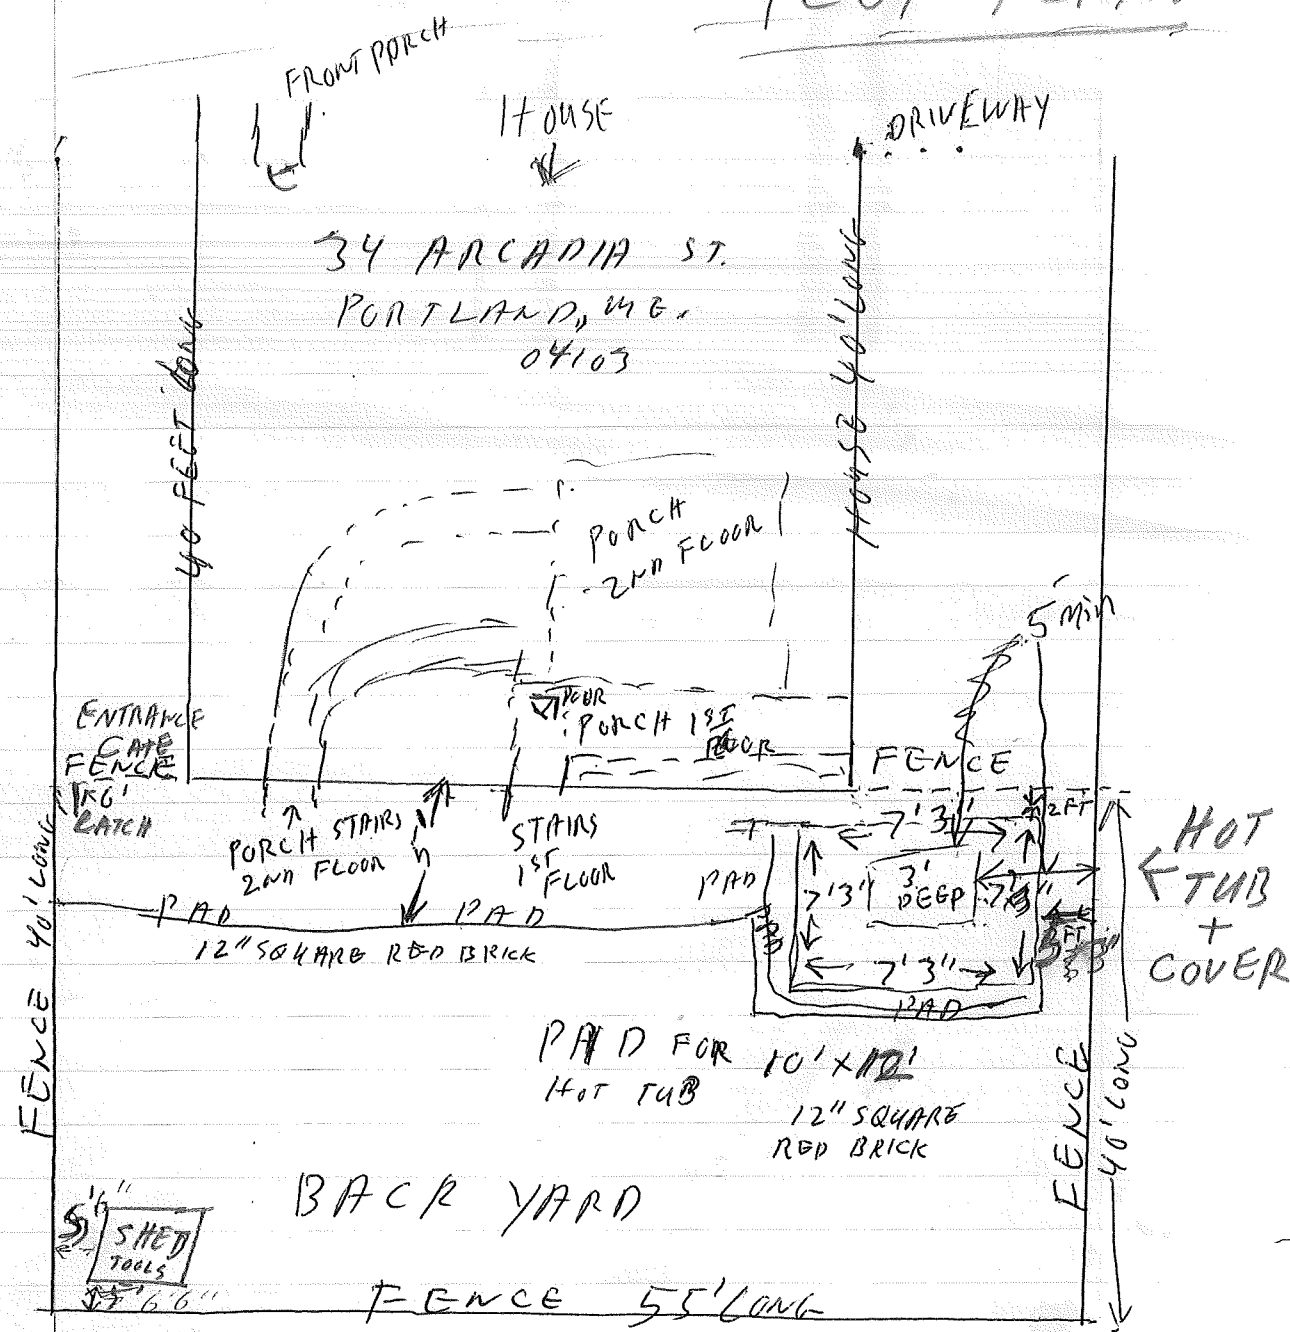 FRONT PORCH
HOUSE
DRIVEWAY
34 ARCADIA ST.
PORTLAND, ME.
04103
40 FEET LONG
HOUSE 40' LONG
PORCH
2ND FLOOR
5' Min
ENTRANCE
GATE
FENCE
LATCH
DOOR
PORCH 1ST
FLOOR
FENCE
2 FT
7'3"
PORCH STAIRS
2ND FLOOR
STAIRS
1ST
FLOOR
HOT
TUB
+
COVER
PAD
7'3"
3'
DEEP
7'3"
PAD
PAD
12" SQUARE RED BRICK
7'3"
PAD
FENCE 40' LONG
PAD FOR
HOT TUB
10' X
12" SQUARE
RED BRICK
FENCE
40' LONG
BACK YARD
SHED
TOOLS
FENCE 55' LONG